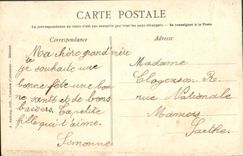 CARTE POSTALE
La correspondance au recto n'est pas acceptée par tous les pays étrangers. — Se renseigner à la Poste
Correspondance
Adresse
Ma chère grand mère
je souhaite une
bonne fête une bonne
santé et de bons
baisers. Ta petite
fille qui t'aime.
Simonne
Madame
Cloyerson R.
rue Nationale
Mamers
Sarthe